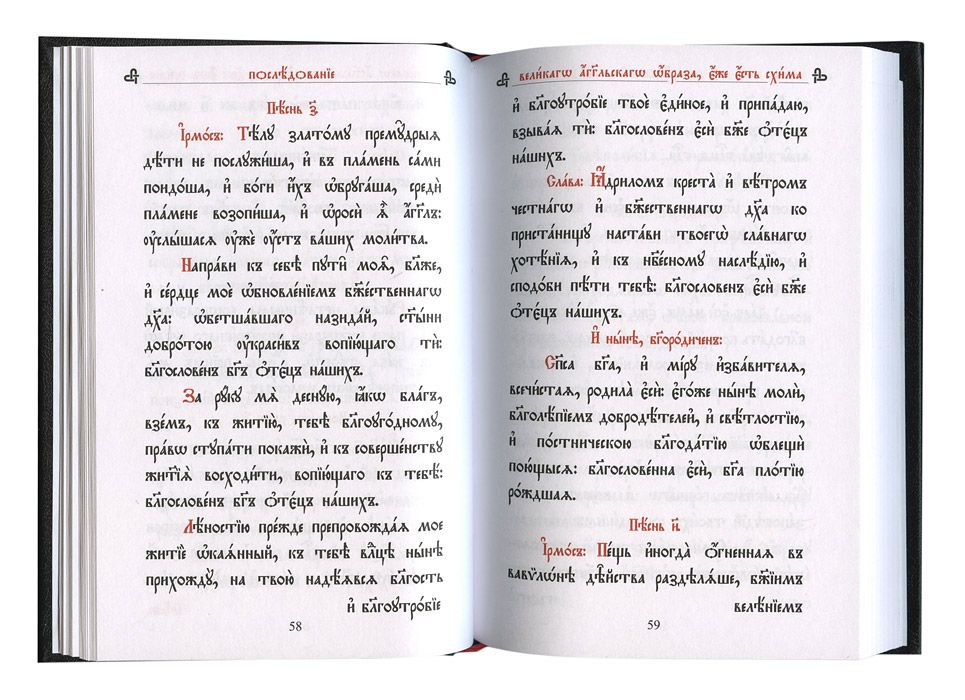 послѣ́дованїе
Пѣ́снь з҃.
І҆рмо́съ: Тѣ́лу злато́му премꙋ́дрыѧ
дѣ́ти не послꙋжи́ша, и҆ въ пла́мень са́ми
поидо́ша, и҆ бо́ги и҆́хъ ѡ҆брꙋга́ша, средѝ
пла́мене возопи́ша, и҆ ѡ҆росѝ ѧ҆̀ а҆́гг҃лъ:
ᲂу҆слы́шасѧ ᲂу҆жѐ ᲂу҆́стъ ва́шихъ моли́тва.
Напра́ви къ себѣ̀ пꙋти̑ моѧ̑, бл҃же,
и҆ се́рдце моѐ ѡ҆бновле́нїемъ бж҃е́ственнагѡ
дх҃а: ѡ҆бетша́вшаго назида́й, сты́ни
добро́тою ᲂу҆кра́сивъ вопїю́щаго тѝ:
бл҃гослове́нъ бг҃ъ ѻ҆те́цъ на́шихъ.
За рꙋ́кꙋ мѧ̀ деснꙋ́ю, ꙗ҆́кѡ бла́гъ,
взе́мъ, къ житїю̀, тебѣ̀ бл҃гоꙋго́дному,
пра́вѡ стꙋпа́ти покажѝ, и҆ къ соверше́нствꙋ
житїѧ̀ восходи́ти, вопїю́щаго къ тебѣ̀:
бл҃гослове́нъ бг҃ъ ѻ҆те́цъ на́шихъ.
Лѣ́ностїю пре́жде препровожда́ѧ мое
житїѐ ѡ҆каѧ́нный, къ тебѣ̀ влⷣце ны́нѣ
прихождꙋ̀, на твою̀ надѣ́ѧвсѧ бл҃гость
и҆ бл҃гоꙋтро́бїе
58
вели́кагѡ а҆́гг҃льскагѡ ѡ҆́браза, є҆́же є҆́сть схи́ма
и҆ бл҃гоꙋтро́бїе твоѐ є҆ди́ное, и҆ припа́даю,
взыва́ѧ тѝ: бл҃гослове́нъ є҆сѝ бж҃е ѻ҆те́цъ
на́шихъ.
Сла́ва: Ꙗ҆дри́ломъ креста̀ и҆ вѣ́тромъ
честна́гѡ и҆ бж҃е́ственнагѡ дх҃а ко
приста́нищꙋ наста́ви твоегѡ̀ сла́внагѡ
хотѣ́нїѧ, и҆ къ нбⷭ҇номꙋ наслѣ́дїю, и҆
сподо́би пѣ́ти тебѣ̀: бл҃гослове́нъ є҆сѝ бж҃е
ѻ҆те́цъ на́шихъ.
И҆ ны́нѣ, бг҃оро́диченъ:
Сп҃са бг҃а, и҆ мі́рꙋ и҆зба́вителѧ,
всечи́стаѧ, родила̀ є҆сѝ: є҆го́же ны́нѣ молѝ,
бл҃голѣ́пїемъ добродѣ́телей, и҆ свѣ́тлостїю,
и҆ по́стническою бл҃года́тїю ѡ҆блещѝ
пою́щыѧсѧ: бл҃гослове́нна є҆сѝ, бг҃а пло́тїю
ро́ждшаѧ.
Пѣ́снь и҃.
І҆рмо́съ: Пе́щь и҆ногда̀ ѻ҆́гненнаѧ въ
вавѷлѡ́нѣ дѣ̑йства раздѣлѧ́ше, бж҃їимъ
велѣ́нїемъ
59